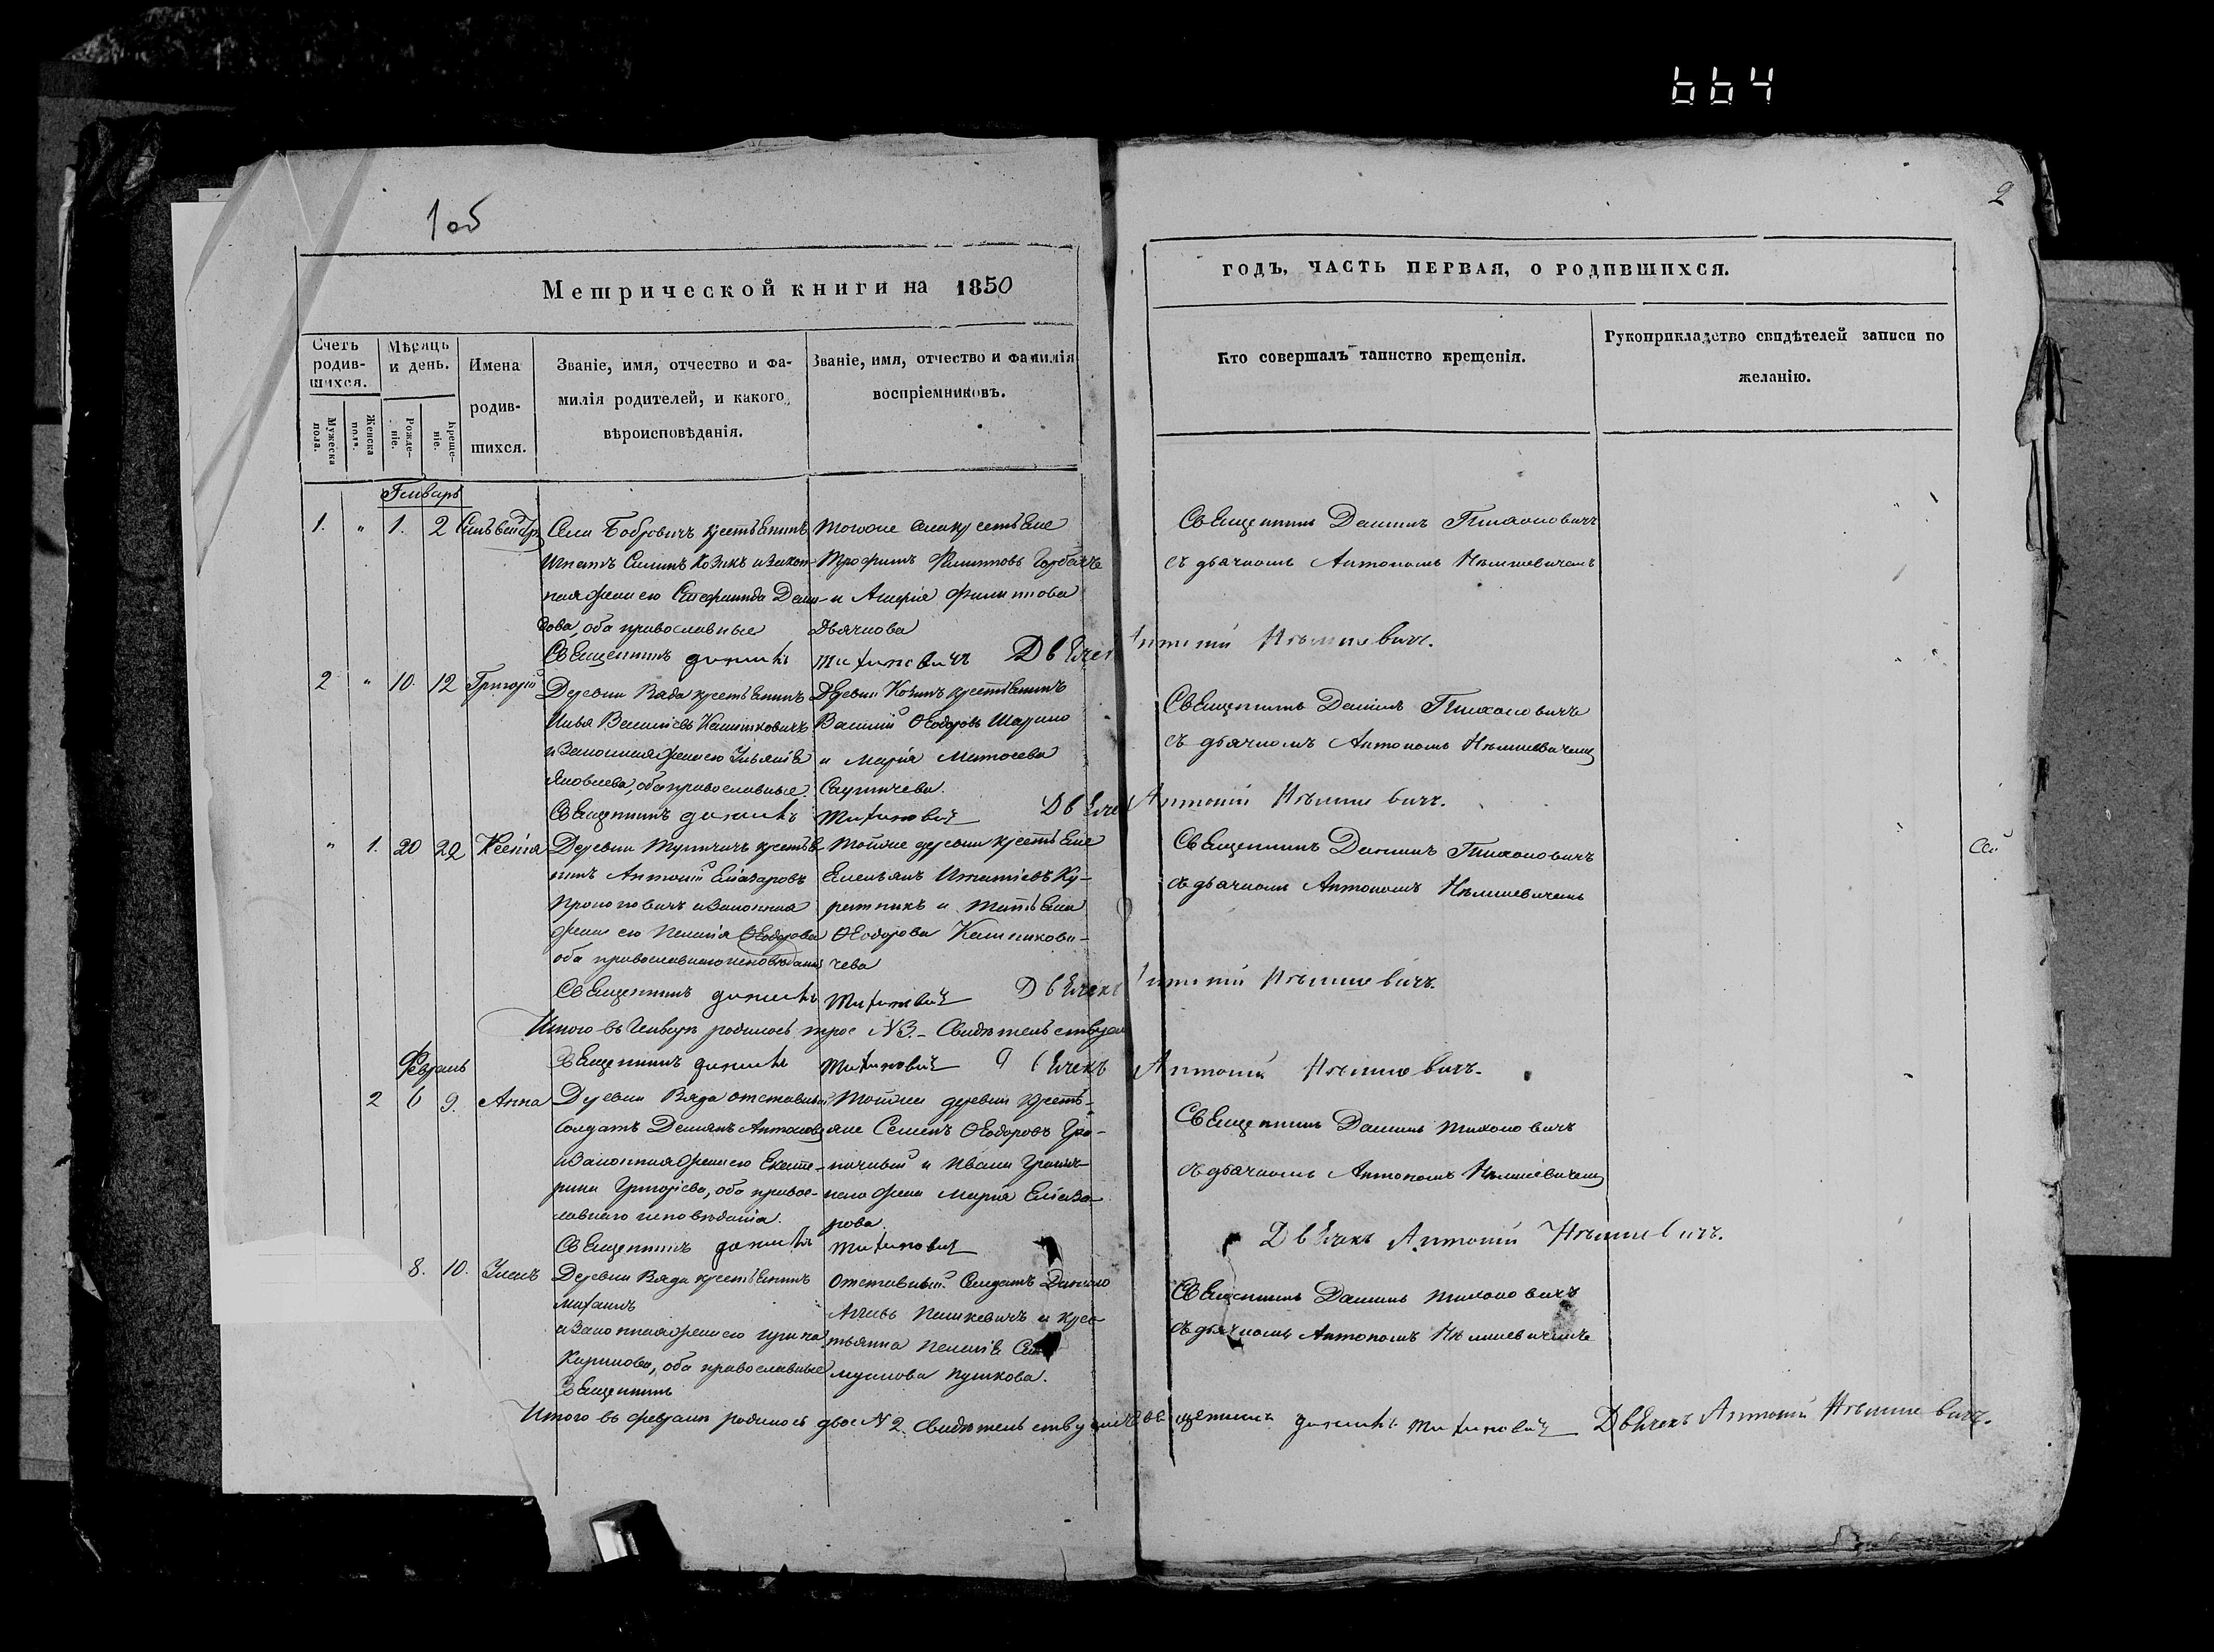 664
1об
2
Метрической книги на 1850
ГОДЪ, ЧАСТЬ ПЕРВАЯ, О РОДИВШИХСЯ.
Счетъ родив-шихся.
Мужеска пола.
Женска пола.
Мѣсяцъ и день.
Рожде-ніе.
Креще-ніе.
Имена родив-шихся.
Званіе, имя, отчество и фа-
милія родителей, и какого
вѣроисповѣданія.
Званіе, имя, отчество и фамилія
воспріемниковъ.
Кто совершалъ таинство крещенія.
Рукоприкладство свидѣтелей записи по
желанію.
Генварь
1. " 1. 2
Села Бобровичъ крестьянинъ
Игнатъ Силинъ Козикъ и закон-
ная жена его
оба православные
Трофимъ Филиповъ Горбачъ
и Филипова
Дьячкова
Священникъ Даніилъ Тихоновичъ
съ дьячкомъ Антономъ Нѣмшевичемъ
Священникъ Даніилъ Тихоновичъ Дьячекъ Антоній Нѣмшевичъ.
2 " 10. 12 Григорій
Деревни Вяда крестьянинъ
Илья Василіевъ
и законная жена его Ульянія
Яковлева, оба православные.
Деревни крестьянинъ
Василій Ѳеодоровъ
и Марія Матѳеева
Священникъ Даніилъ Тихоновичъ
съ дьячкомъ Антономъ Нѣмшевичемъ
Священникъ Даніилъ Тихоновичъ Дьячекъ Антоній Нѣмшевичъ.
" 1. 20 22 Ксенія
Деревни крестья-
нинъ Антоній Елазаровъ
Прокоповичъ и законная
жена его Пелагія Ѳеодорова
оба православнаго исповѣданія
Тойже деревни крестьяне
Емельянъ Игнатіевъ Ку-
ратникъ и Татьяна
Ѳеодорова
чева
Священникъ Даніилъ Тихоновичъ
съ дьячкомъ Антономъ Нѣмшевичемъ
Священникъ Даніилъ Тихоновичъ Дьячекъ Антоній Нѣмшевичъ.
Итого въ Генварѣ родилось трое N 3. Свидѣтельствуемъ
Священникъ Даніилъ Тихоновичъ Дьячекъ Антоній Нѣмшевичъ.
Февраль
2 6 9. Анна
Деревни Вяда отставный
солдатъ Демьянъ Антоновъ
и законная жена его Екате-
рина Григорьева, оба правос-
лавнаго исповѣданія.
Тойже деревни кресть-
яне Семенъ Ѳеодоровъ
и Ивана
жена Марія Елеаза-
рова.
Священникъ Даніилъ Тихоновичъ
съ дьячкомъ Антономъ Нѣмшевичемъ
Священникъ Даніилъ Тихоновичъ Дьячекъ Антоній Нѣмшевичъ.
8. 10.
Деревни Вяда крестьянинъ
Михаилъ
и законная жена его
оба православные
Священникъ
Отставный Солдатъ Данило
и крес-
тьянка Пелагія
Пушкова.
Священникъ Даніилъ Тихоновичъ
съ дьячкомъ Антономъ Нѣмшевичемъ
Итого въ февралѣ родилось двое N 2. Свидѣтельствуемъ Священникъ Даніилъ Тихоновичъ Дьячекъ Антоній Нѣмшевичъ.